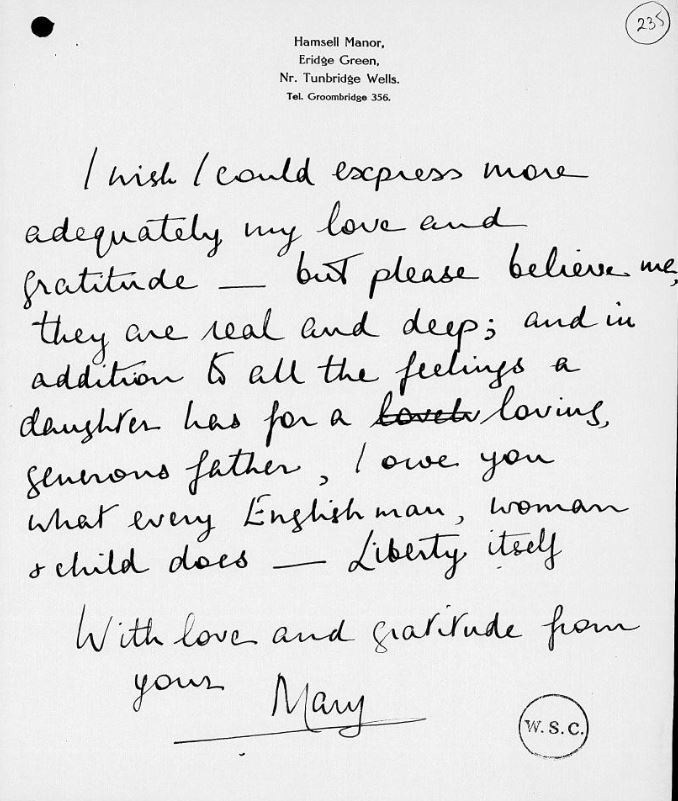 235
Hamsell Manor,
Eridge Green,
Nr. Tunbridge Wells.
Tel. Groombridge 356.
I wish I could express more
adequately my love and
gratitude — but please believe me,
they are real and deep; and in
addition to all the feelings a
daughter has for a loving,
generous father, I owe you
what every Englishman, woman
& child does — Liberty itself
With love and gratitude from
your
Mary
W.S.C.